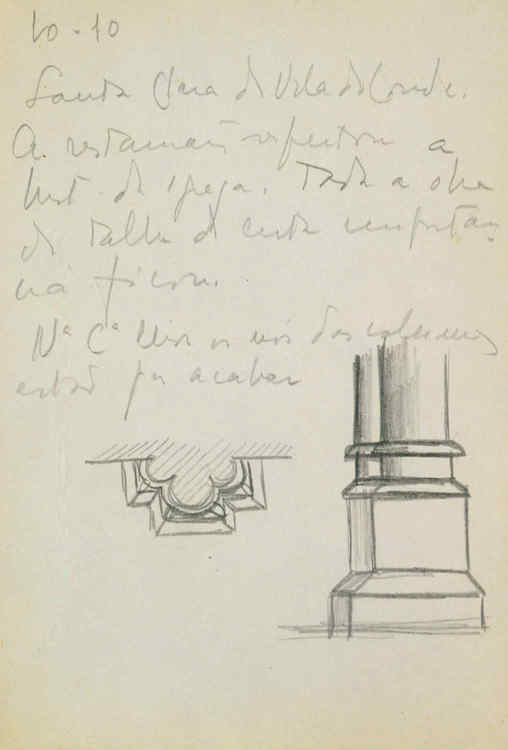 10-10
Santa Clara de Vila do Conde.
A restauração respeitou a
hist. da igreja. Toda a obra
de talha de certa importan
cia ficou.
Na Ca Mor os nós das colunas
estão por acabar